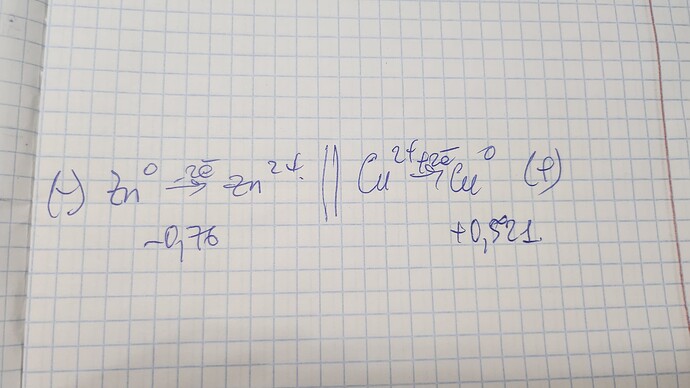 (-) Zn⁰ -2ē→ Zn²⁺ || Cu²⁺ +2ē→ Cu⁰ (+)
-0,76 +0,521